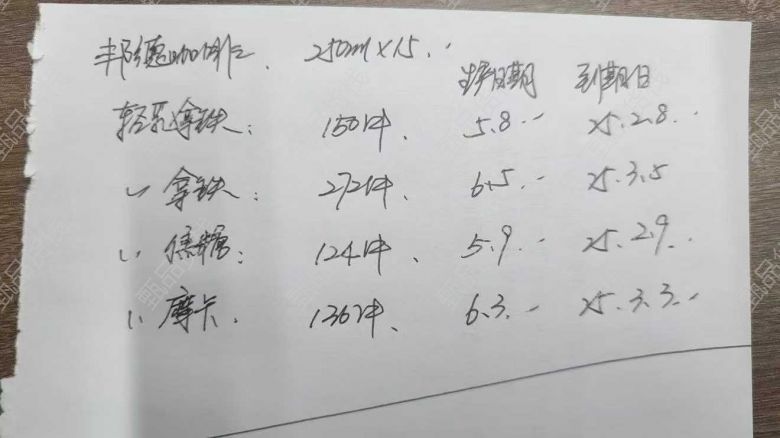 邦德咖啡、 250ml×15..
生产日期 到期日
轻乳拿铁: 150件、 5.8.. 25.2.8..
〃 拿铁: 272件、 6.5.. 25.3.5
〃 焦糖: 124件、 5.9.. 25.2.9..
〃 摩卡. 136件、 6.3.. 25.3.3..